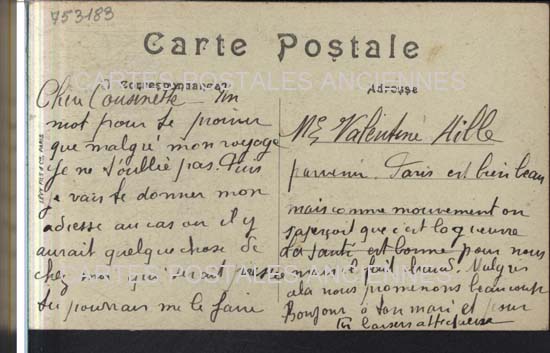 753183
Carte Postale
CARTES POSTALES ANCIENNES
Correspondance
Adresse
Chère Cousinette Un
mot pour te prouver
que malgré mon voyage
je ne t'oublie pas. Puis
je vais te donner mon
adresse au cas ou il y
aurait quelque chose de
chez moi qui serait
tu pourrais me le faire
Valentine Hille
parvenir. Paris est bien beau
mais comme mouvement on
s'aperçoit que c'est la guerre
La santé est bonne pour nous
mais il fait chaud. Malgrés
cela nous promenons beaucoup
Bonjour à ton mari et pour
toi baisers affectueux
CARTES POSTALES ANCIENNES